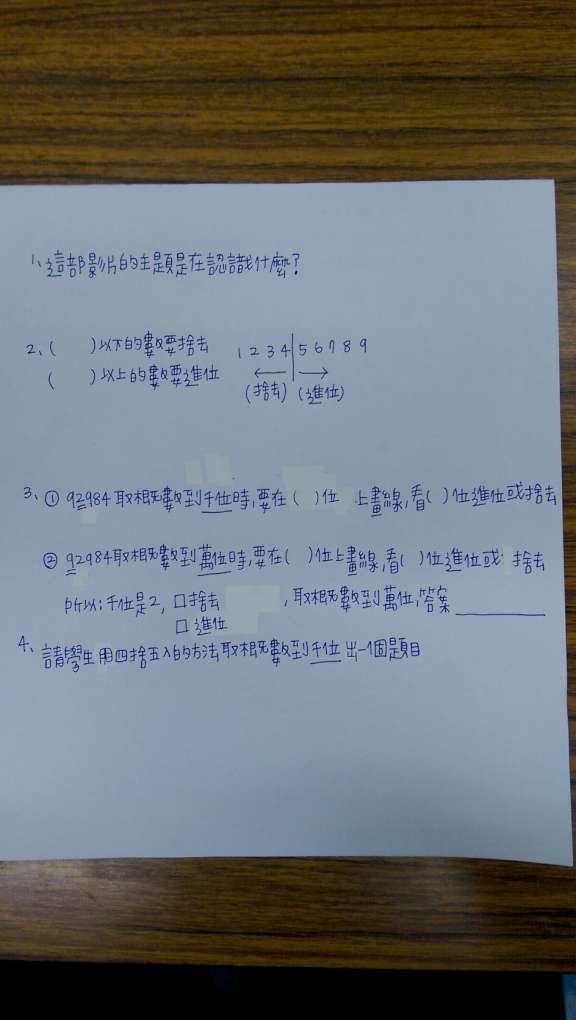 1、這部影片的主題是在認識什麼?
2、(    )以下的數要捨去
1 2 3 4|5 6 7 8 9
(    )以上的數要進位
(捨去) (進位)
3、① 92984取概數到千位時,要在(  )位 上畫線,看(  )位進位或捨去
② 92984取概數到萬位時,要在(  )位上畫線,看(  )位進位或捨去
所以:千位是2, □捨去 ,取概數到萬位,答案________
□進位
4、請學生用四捨五入的方法取概數到千位出一個題目